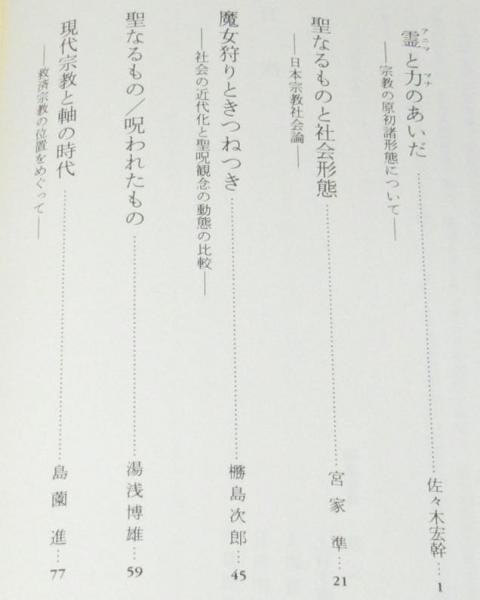 霊と力のあいだ……佐々木宏幹…1
アニマ
マナ
——宗教の原初諸形態について——
聖なるものと社会形態……宮家準…21
——日本宗教社会論——
魔女狩りときつねつき……橳島次郎…45
——社会の近代化と聖呪観念の動態の比較——
聖なるもの／呪われたもの……湯浅博雄…59
現代宗教と軸の時代……島薗進…77
——救済宗教の位置をめぐって——